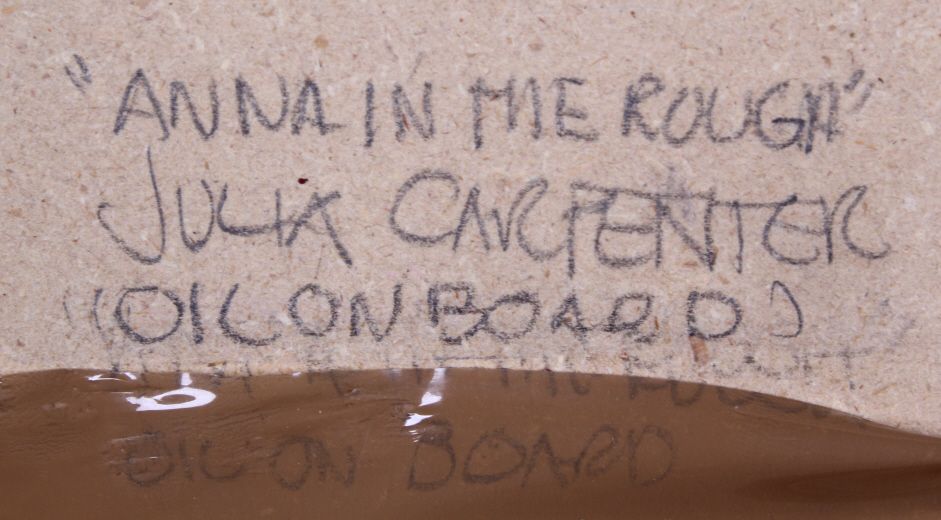 "ANNA IN THE ROUGH"
JULIA CARPENTER
(OIL ON BOARD)
IN THE ROUGH
OIL ON BOARD